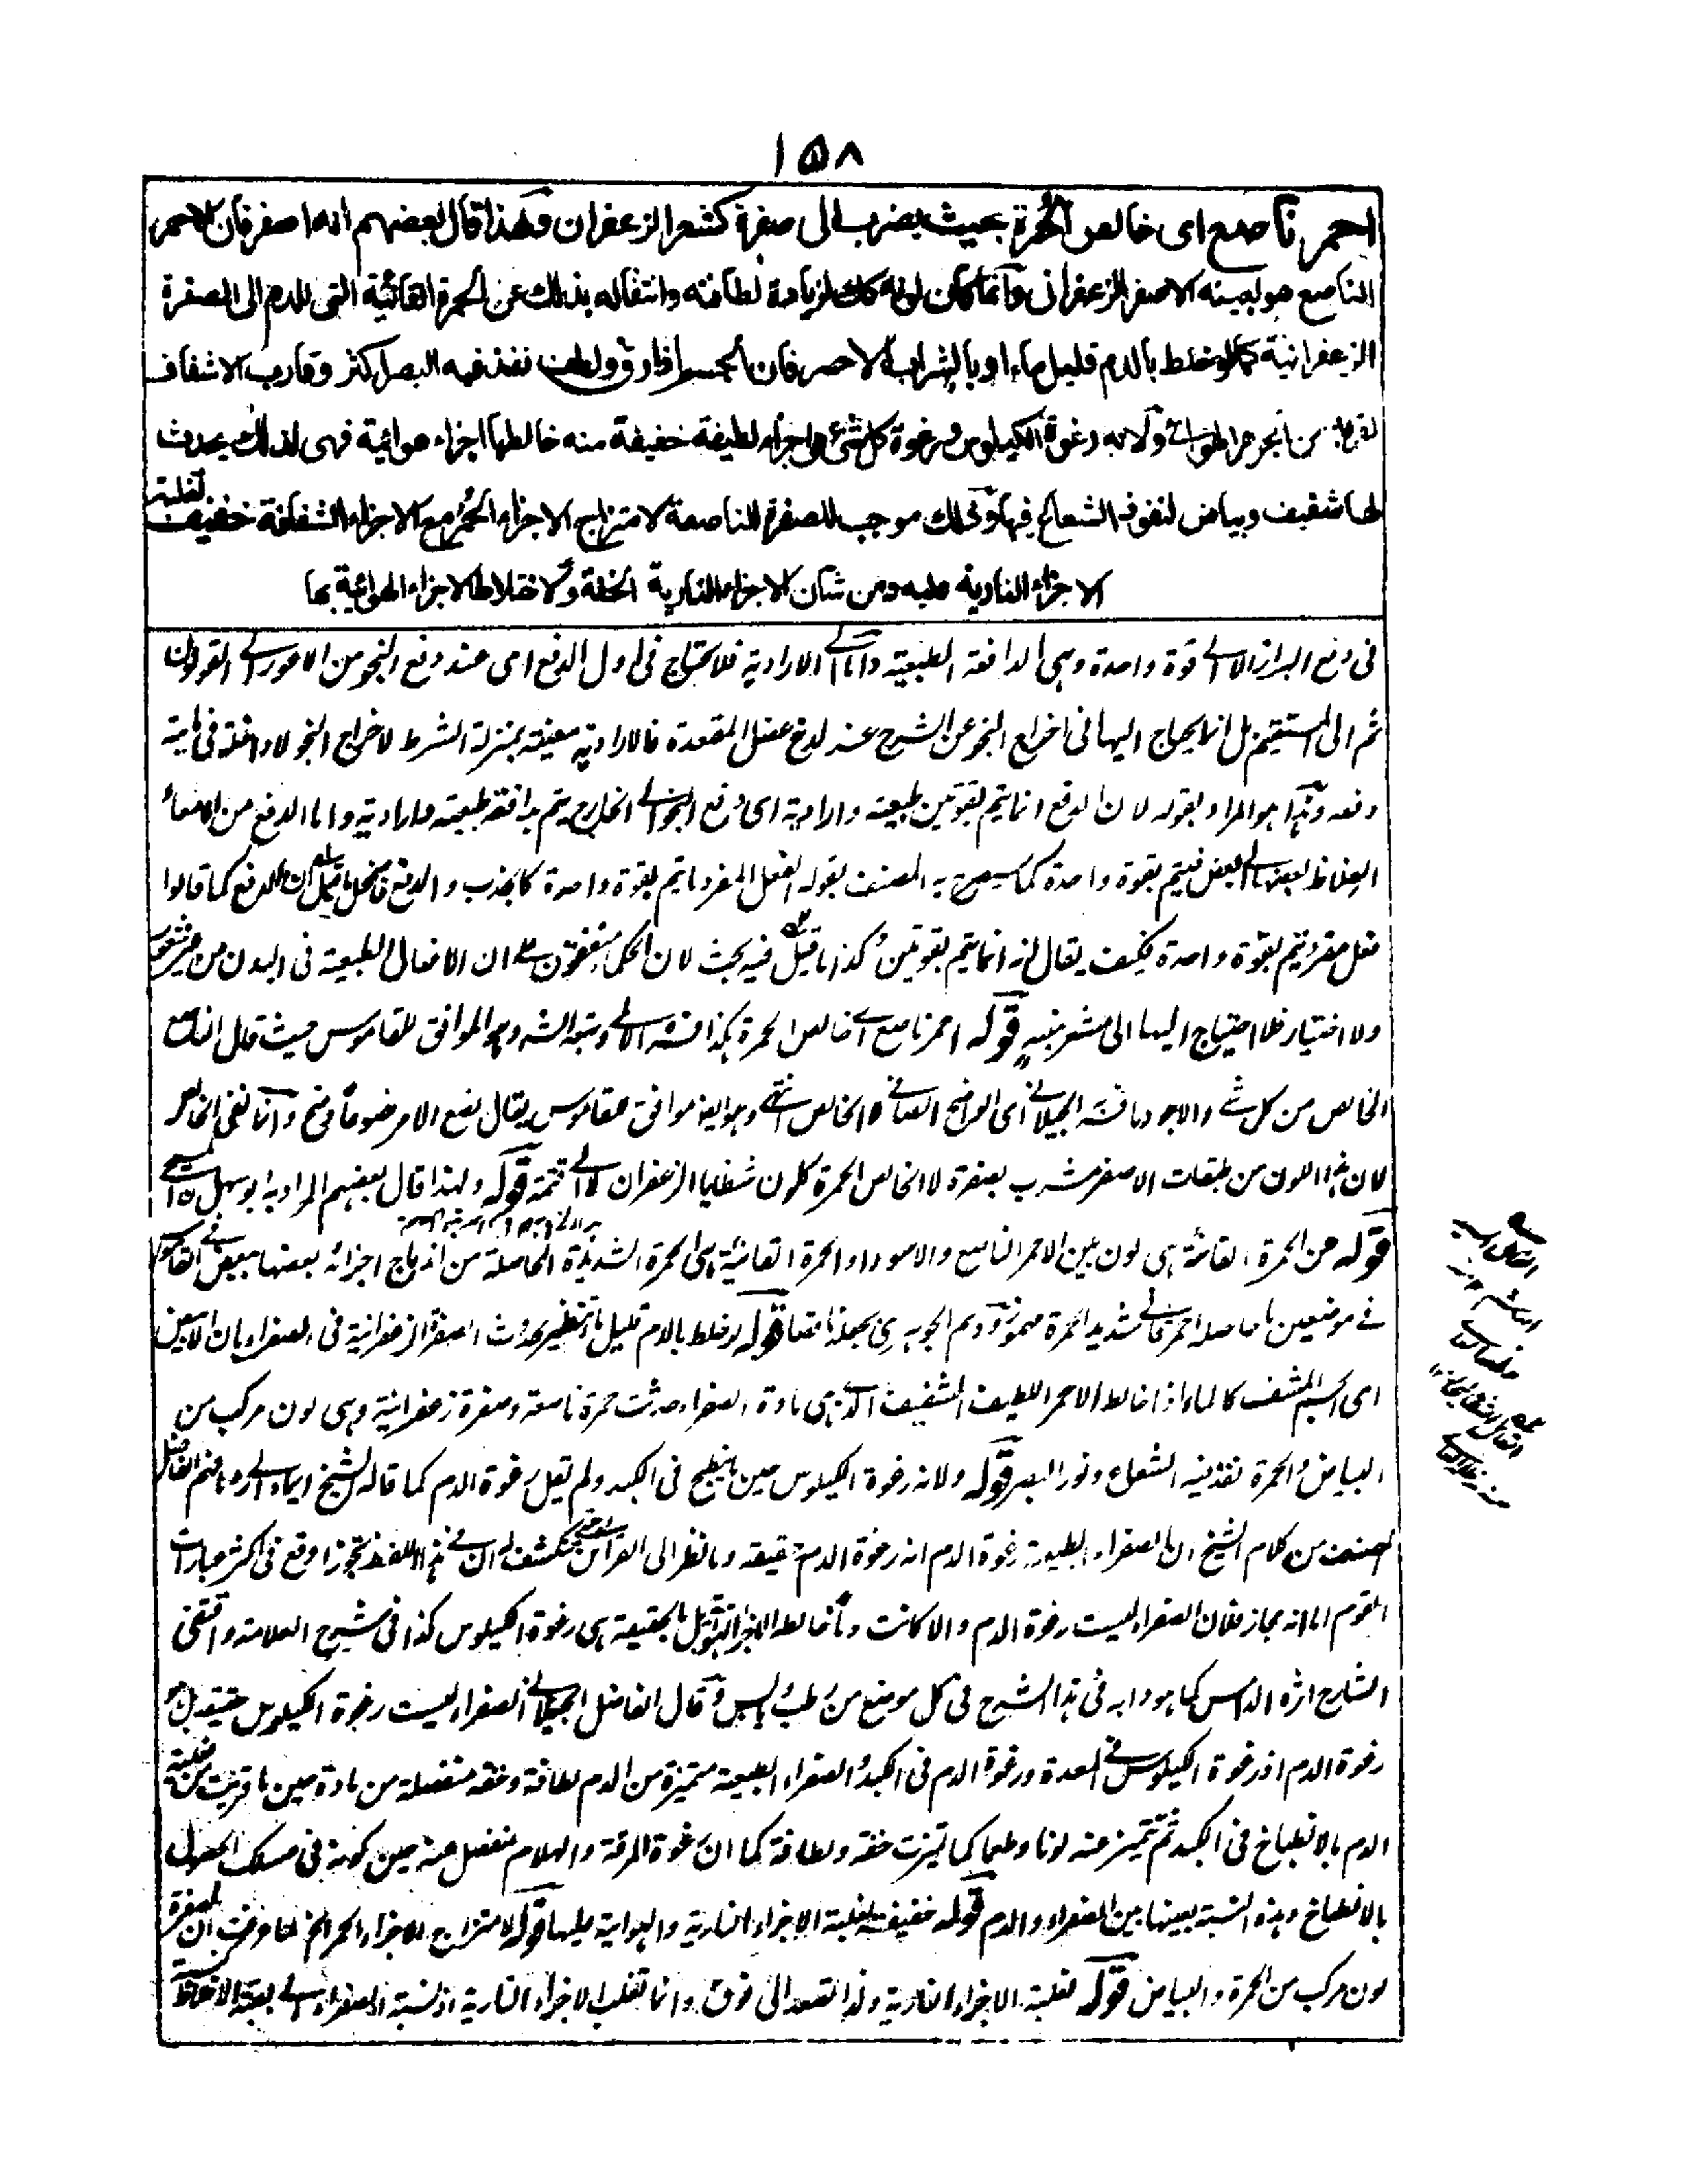 ١٥٨
احمر ناصع اى خالص الحمرة بحيث يضرب الى صفرة كشعر الزعفران ولهذا قال بعضهم انه اصفر فان الاحمر
الناصع هو بعينه الاصفر الزعفرانى وانما كان لونه كذلك لزيادة لطافته وانتقاله بذلك عن الحمرة القانية التى للدم الى الصفرة
الزعفرانية كما لو خلط بالدم قليل ماء او بالشراب الاحمر فان الجسم اذا رق ولطف نفذ فيه البصر اكثر وقارب الاشفاف
من الجوهر الهوائى ولانه رغوة الكيلوس ورغوة كل شئ هى اجزاء لطيفة خفيفة منه خالطها اجزاء هوائية فهى لذلك يحدث
لها شفيف وبياض لنفوذ الشعاع فيها وذلك موجب للصفرة الناصعة لامتزاج الاجزاء الحمر مع الاجزاء الشفافة خفيف لغلبة
الاجزاء النارية عليه ومن شان الاجزاء النارية الخفة ولاختلاط الاجزاء الهوائية بها
فى دفع البراز الا الى قوة واحدة وهى الدافعة الطبيعية واما الى الارادية فلا يحتاج فى اول الدفع اى عند دفع النجو من الاعور الى القولون
ثم الى المستقيم بل انما يحتاج اليها فى اخراج النجو عن الشرج عند لدغ عضل المقعدة فالارادية معينة بمنزلة الشرط لاخراج النجو لا داخلة فى
دفعه وهذا هو المراد بقوله لان الدفع انما يتم بقوتين طبيعية وارادية اى دفع النجو الى الخارج يتم بدافعة طبيعية وارادية واما الدفع من الامعاء
الغلاظ بعضها الى بعض فيتم بقوة واحدة كما سيصرح به المصنف بقوله الفعل المفرد ما يتم بقوة واحدة كالجذب والدفع فانحل ما قيل ان الدفع كما قالوا
فعل مفرد يتم بقوة واحدة فكيف يقال انه انما يتم بقوتين كذا ما قيل فيه بحث لان الكل متفقون على ان الافعال الطبيعية فى البدن من غير شعور
ولا اختيار فلا احتياج اليها الى مشعر منبه قوله احمر ناصع اى خالص الحمرة هكذا فسره الآملى وتبعه الشه وهو الموافق للقاموس حيث قال الناصع
الخالص من كل شئ والاجود ما فسره الجيلانى اى الواضح الصافى الخالص انتهى وهو ايضا موافق للقاموس يقال نصع الامر نصوعا وضح وانما نفى الخالص
لان هذا اللون من طبقات الاصفر مشرب بصفرة لا الخالص الحمرة كلون شظايا الزعفران قوله ولهذا قال بعضهم المراد به ابو سهل المسيحى
قوله عن الحمرة القانئة هى لون بين الاحمر الناصع والاسود او الحمرة القانية هى الحمرة الشديدة الحاصلة من اندماج اجزائه بعضها ببعض
فى موضعين ما حاصله احمر قانى شديد الحمرة مهموز ووهم الجوهرى بجعله ناقصا قوله لو خلط بالدم قليل ماء تنظير لحدوث الصفرة الزعفرانية فى الصفراء بان الابيض
اى الجسم المشف كالماء اذا خالط الاحمر اللطيف الشفيف الذى هى مادة الصفراء حدثت حمرة ناصعة وصفرة زعفرانية وهى لون مركب من
البياض والحمرة لنفذ فيه الشعاع ونور البصر قوله ولانه رغوة الكيلوس حين ينطبخ فى الكبد ولم يقل رغوة الدم كما قاله الشيخ ايماء الى رد ما فهم الفاضل
المصنف من كلام الشيخ ان الصفراء الطبيعية رغوة الدم انه رغوة الدم حقيقة وبالنظر الى القرائن ينكشف ان فى هذا اللفظ تجوزا وقع فى اكثر عبارات
القوم اما انه مجاز فلان الصفراء ليست رغوة الدم والا كانت دما خالطه الاجزاء الهوائية بل بالحقيقة هى رغوة الكيلوس كذا فى شرح العلامة واقتفى
الشارح اثره الدارس كما هو دابه فى هذا الشرح فى كل موضع من رطب ويابس وقال الفاضل الجيلانى الصفراء ليست رغوة الكيلوس حقيقة بل هو
رغوة الدم اذ رغوة الكيلوس فى المعدة ورغوة الدم فى الكبد والصفراء الطبيعية متميزة من الدم لطافة وخفة منفصلة من مادة حين ما قربت من فعلية
الدم بالانطباخ فى الكبد ثم تتميز عنه لونا وطعما كما تميزت خفة ولطافة كما ان رغوة المرقة والهلام منفصل عنه حين كونه فى مسلك الحصول
بالانطباخ وهذه النسبة بعينها بين الصفراء والدم قوله خفيف لغلبة الاجزاء النارية والهوائية عليها قوله لامتزاج الاجزاء الحمر الخ لما عرفت ان الصفرة
لون مركب من الحمرة والبياض قوله لغلبة الاجزاء النارية ولذا تصعد الى فوق وانما تغلب الاجزاء النارية اذ نسبة الصفراء الى بقية الاخلاط